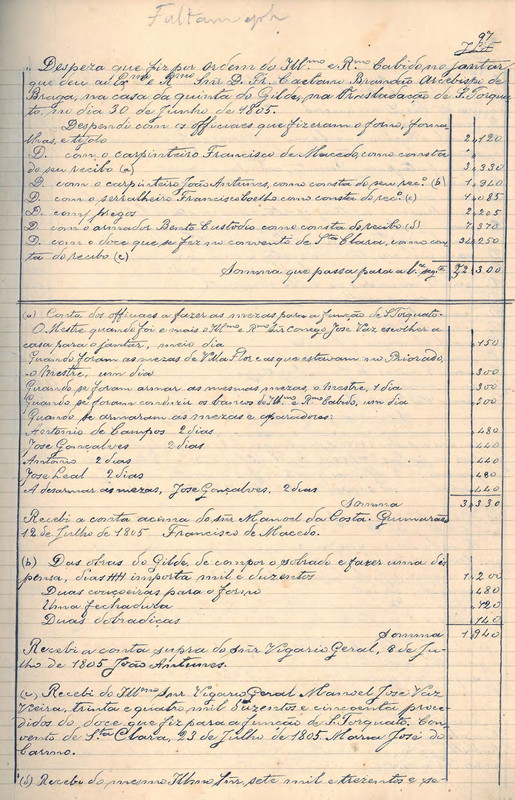 Faltam
97
Despeza que fiz por ordem do Illmo e Rmo Cabido no jantar
que deu ao Exmo e Rmo Snr D. Fr. Caetano Brandão Arcebispo de
Braga, na casa da quinta do Gilde, na Trasladação de S. Torqua-
to, no dia 30 de Junho de 1805.
Despendi com os officiaes que fizeram o forno, forna-
lhas, e tijolo 2,120
D. com o carpinteiro Francisco de Macedo, como consta
do seu recibo (a) 3,330
D. com o carpinteiro João Antunes, como consta do seu reco (b) 1,940
D. com o serralheiro Francisco Coelho como consta do reco (c) 1,085
D. com pregos 2,205
D. com o armador Bento Custodio como consta do recibo (d) 7,370
D. com o doce que se fez no convento de Sta Clara, como con-
ta do recibo (e) 34,250
Somma que passa para a 52,300
(a) Conta dos officiaes a fazer as mezas para a função de S. Torquato.
O Mestre quando foi e mais o Illmo e Rmo Snr conego José Vaz escolher a
casa para o jantar, meio dia ,150
Quando foram as mezas de Villa Flor e as que estavam no Priorado,
o mestre, um dia ,300
Quando se foram armar as mesmas mezas, o mestre, 1 dia ,300
Quando se foram conduzir os bancos do Illmo e Rmo Cabido, um dia ,300
Quando se armaram as mezas e aparadores:
Antonio de Campos 2 dias ,480
José Gonçalves 2 dias ,440
Antonio 2 dias ,440
José Leal 2 dias ,480
A desarmar as mezas, José Gonçalves. 2 dias ,440
Somma 3,330
Recebi a conta acima do snr Manoel da Costa. Guimarães
12 de Julho de 1805 Francisco de Macedo.
(b) Das obras do Gilde, de compor o sobrado e fazer uma des-
pensa, dias importa mil e duzentos 1,200
Duas couçoeiras para o forno ,480
Uma fechadura ,120
Duas dobradiças ,140
Somma 1,940
Recebi a conta supra do snr Vigario Geral, 8 de Ju-
lho de 1805 João Antunes.
(c) Recebi do Illmo Snr Vigario Geral Manoel José Vaz
Vieira, trinta e quatro mil duzentos e cincoenta proce-
didos do doce que fiz para a função de S. Torquato. Con-
vento de Sta Clara, 23 de Julho de 1805 Maria José do
Carmo.
(d) Recebi do mesmo Illmo Snr, sete mil e trezentos e se-